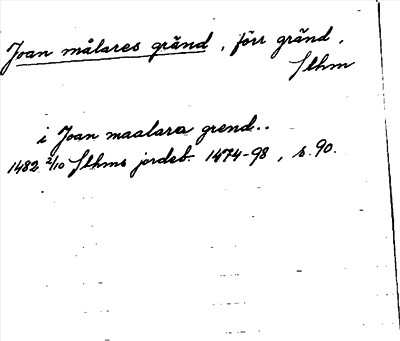 Joan målares gränd, förr gränd,
Sthm
i Joan maalara grend..
1482 2/10 Sthms jordeb. 1474-98, s. 90.